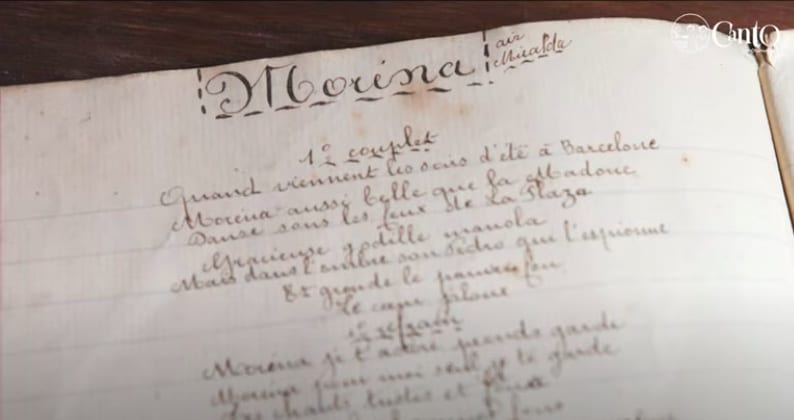 Morena
air
Miralda
CantO
1º couplet
Quand viennent les soirs d'été à Barcelone
Morena aussi belle que la Madone
Danse sous les feux de La Plaza
Gracieuse manola
Mais dans l'ombre son Pedro qui l'espionne
Et gronde le pauvre fou
Le cœur jaloux
1º refrain
Morena je t'adore prends garde
Morena pour moi seul je te garde
Les chants tristes et